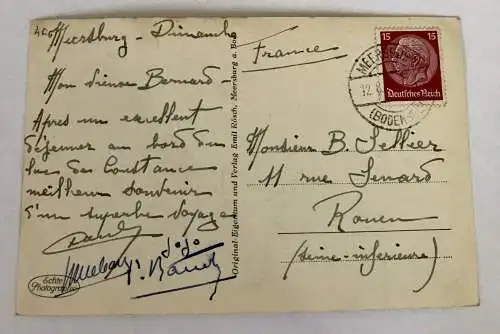 Meersburg - Dimanche
Mon vieux Bernard -
Apres un excellent
déjeuner au bord du
lac de Constance
meilleur souvenir
d'un superbe voyage
Jojo
Echte
Photographie
Original-Eigentum und Verlag Emil Rösch, Meersburg a. Bod.
France
15 15
Deutsches Reich
MEERSBURG
(BODENSEE)
12.
Monsieur B. Sellier
11 rue Senard
Rouen
(Seine-inférieure)